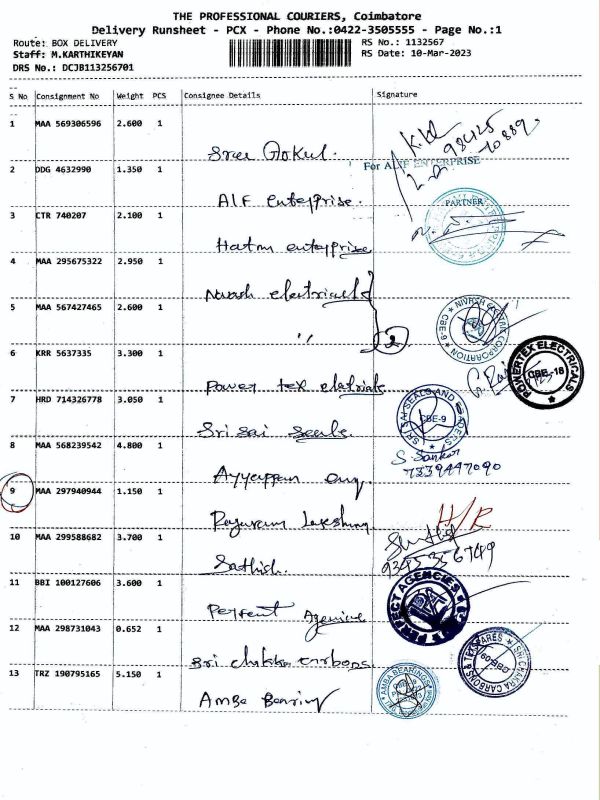 THE PROFESSIONAL COURIERS, Coimbatore
Delivery Runsheet - PCX - Phone No.:0422-3505555 - Page No.:1
Route: BOX DELIVERY RS No.: 1132567
Staff: M.KARTHIKEYAN RS Date: 10-Mar-2023
DRS No.: DCJB113256701
S No Consignment No Weight PCS Consignee Details Signature
1 MAA 569306596 2.600 1
Sree Gokul. 98425 70889
2 DDG 4632990 1.350 1 For ALIF ENTERPRISE
Alf enterprise. PARTNER
3 CTR 740207 2.100 1
Hatm enterprise
4 MAA 295675322 2.950 1
Nivash electricals
5 MAA 567427465 2.600 1 NIVASH ELECTRIC CORPORATION CBE-9
" 2
6 KRR 5637335 3.300 1 POWERTEX ELECTRICALS CBE-18
Power tex electricals
7 HRD 714326778 3.050 1 SRI SAI SEALS AND CBE-9
Sri Sai Seals.
8 MAA 568239542 4.800 1 S. Sankar
Ayyappan eng 7339447090
9 MAA 297940944 1.150 1
Rajuram Lakshmy H/R
10 MAA 299588682 3.700 1
Sathish.
11 BBI 100127606 3.600 1 PERFECT AGENCIES
Perfect Agencies
12 MAA 298731043 0.652 1 SRI CHAKRA CARBONS & TEXSPARES
Sri Chakka carbons
13 TRZ 190795165 5.150 1 AMBA BEARINGS
Amba Bearing